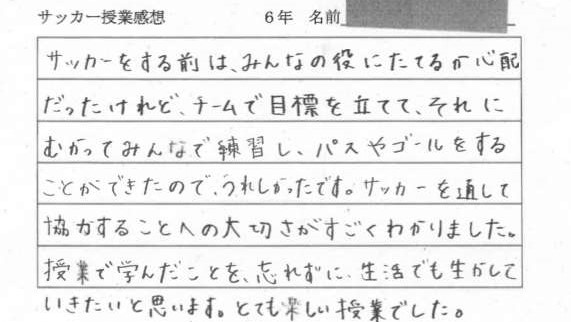 サッカー授業感想　6年　名前
サッカーをする前は、みんなの役にたてるか心配
だったけれど、チームで目標を立てて、それに
むかってみんなで練習し、パスやゴールをする
ことができたので、うれしかったです。サッカーを通して
協力することへの大切さがすごくわかりました。
授業で学んだことを、忘れずに、生活でも生かして
いきたいと思います。とても楽しい授業でした。